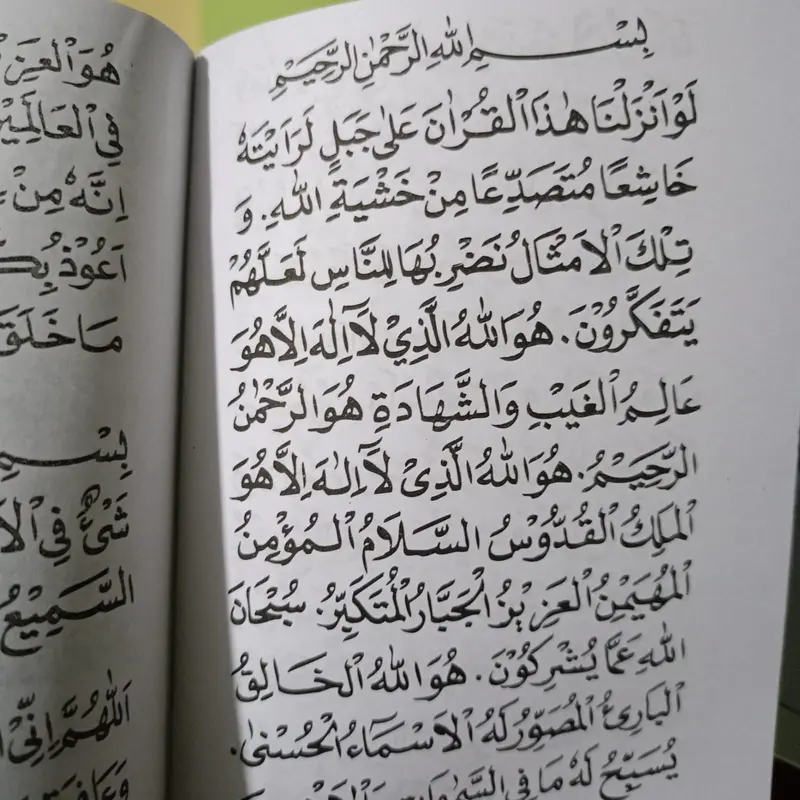 بِسْمِ اللهِ الرَّحْمٰنِ الرَّحِيْمِ
لَوْ اَنْزَلْنَا هٰذَا الْقُرْاٰنَ عَلٰى جَبَلٍ لَرَاَيْتَهٗ
خَاشِعًا مُتَصَدِّعًا مِنْ خَشْيَةِ اللهِ. وَ
تِلْكَ الْاَمْثَالُ نَضْرِبُهَا لِلنَّاسِ لَعَلَّهُمْ
يَتَفَكَّرُوْنَ. هُوَ اللهُ الَّذِيْ لَآ اِلٰهَ اِلَّا هُوَ
عَالِمُ الْغَيْبِ وَالشَّهَادَةِ هُوَ الرَّحْمٰنُ
الرَّحِيْمُ. هُوَ اللهُ الَّذِىْ لَآ اِلٰهَ اِلَّا هُوَ
الْمَلِكُ الْقُدُّوْسُ السَّلَامُ الْمُؤْمِنُ
الْمُهَيْمِنُ الْعَزِيْزُ الْجَبَّارُ الْمُتَكَبِّرُ. سُبْحَانَ
اللهِ عَمَّا يُشْرِكُوْنَ. هُوَ اللهُ الْخَالِقُ
الْبَارِئُ الْمُصَوِّرُ لَهُ الْاَسْمَاءُ الْحُسْنٰى.
يُسَبِّحُ لَهٗ مَا فِى السَّمٰوَاتِ
هُوَ الْعَزِ
فِي الْعَالَمِيْ
اِنَّهٗ مِنْ
اَعُوْذُ بِكَ
مَا خَلَقَ
بِسْمِ
شَيْءٌ فِي الْا
السَّمِيْعُ
اَللّٰهُمَّ اِنِّيْ